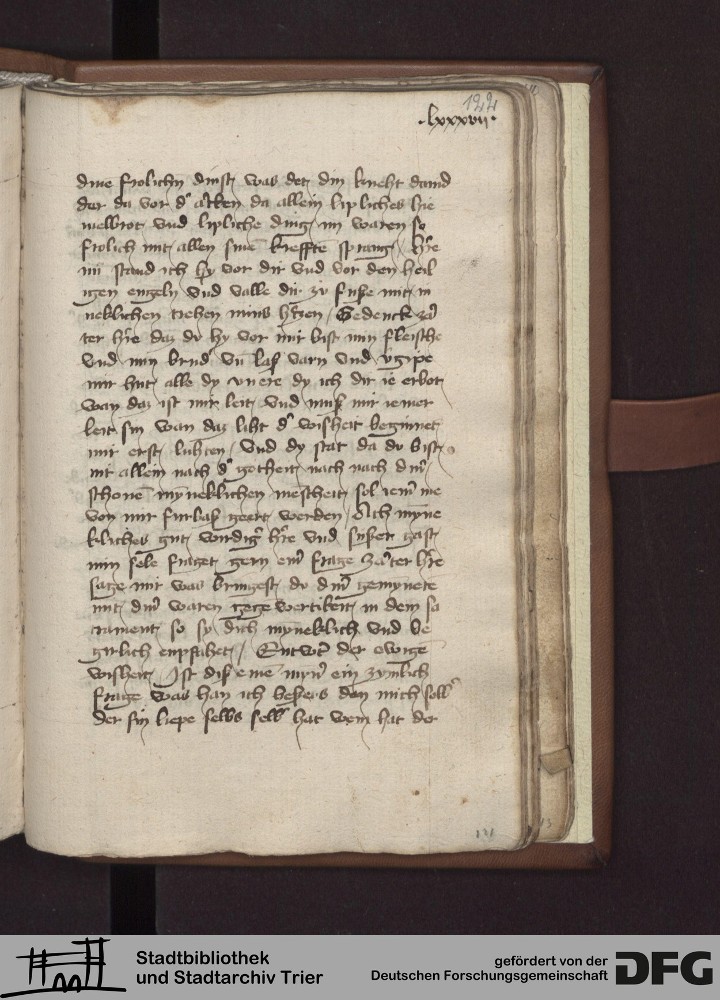 122
·lxxxvii·
dine frolichn dinst was det din kneht dauid
der da vor dˢ arken da allein lipliches hie
melbrot vnd lipliche ding in waren so
frolich mit allen sinē kreffte sprang / h're
nū stand ich hy vor dir vnd vor den heil
igen engeln vnd valle dir zv fusse mit in
neklichen trehen mins h'tzen / Gedenck za'
ter h're daz dv hy vor mir bist min fleische
vnd min brud' vn̄ lass varn vnd v'gipe
mir hut alle dy vnere dy ich dir ie erbot
wan daz ist mir leit vnd muss mir iemer
leit sin wan daz liht d' wisheit beginnet
mir erst luhten / Vnd dy stat da dv bist
nit allein nach d' gotheit nach nach din'
schonē myneklichen mēscheit sol iem' me
von mir furbass geert werden / Ach myne
kliches gut wirdig' h're vnd susser gast
min sele fraget gern ein' frage za'ter h're
sage mir was bringest dv din' gemynete
mit din' waren gegēwertikeit in dem sa
crament so sy dich myneklich vnd be
girlich enpfahet / Entw't der ewige
wisheit Ist diss einē myn' ein zymlich
frage was han ich bessers den mich selb'
der sin liepe selbs selb' hat wem hat der
Stadtbibliothek
und Stadtarchiv Trier
gefördert von der
Deutschen Forschungsgemeinschaft
DFG